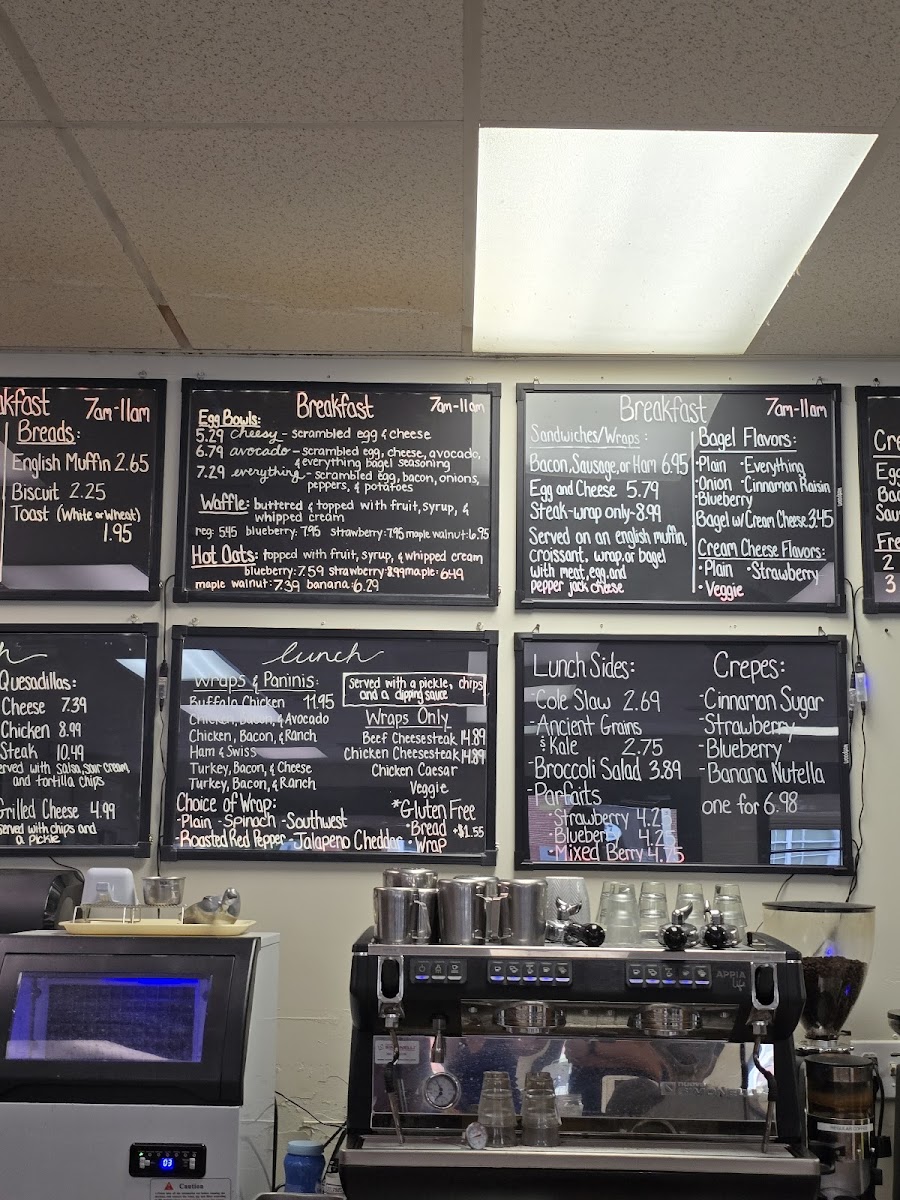 kfast 7am-11am
Breads:
English Muffin 2.65
Biscuit 2.25
Toast (White or Wheat)
1.95
Breakfast 7am-11am
Egg Bowls:
5.29 cheesy - scrambled egg & cheese
6.79 avocado - scrambled egg, cheese, avocado,
& everything bagel seasoning
7.29 everything - scrambled egg, bacon, onions,
peppers, & potatoes
Waffle: buttered & topped with fruit, syrup, &
whipped cream
reg: 5.45 blueberry: 7.95 strawberry: 7.95 maple walnut: 6.95
Hot Oats: topped with fruit, syrup, & whipped cream
blueberry: 7.59 strawberry 8.99 maple: 6.49
maple walnut: 7.39 banana: 6.79
Breakfast 7am-11am
Sandwiches/Wraps:
Bacon, Sausage, or Ham 6.95
Egg and Cheese 5.79
Steak-wrap only-8.99
Served on an english muffin,
croissant, wrap, or bagel
with meat, egg, and
pepper jack cheese
Bagel Flavors:
•Plain •Everything
•Onion •Cinnamon Raisin
•Blueberry
Bagel w/ Cream Cheese 3.45
Cream Cheese Flavors:
•Plain •Strawberry
•Veggie
Cre
Egg
Bac
Sau
Fre
2
3
h
Quesadillas:
Cheese 7.39
Chicken 8.99
Steak 10.49
erved with salsa, sour cream,
and tortilla chips
Grilled Cheese 4.99
served with chips and
a pickle
Lunch
Wraps & Paninis:
Buffalo Chicken 11.95
Chicken, Bacon, & Avocado
Chicken, Bacon, & Ranch
Ham & Swiss
Turkey, Bacon, & Cheese
Turkey, Bacon, & Ranch
Choice of Wrap:
•Plain -Spinach -Southwest
•Roasted Red Pepper -Jalapeno Cheddar
Served with a pickle, chips
and a dipping sauce
Wraps Only
Beef Cheesesteak 14.89
Chicken Cheesesteak 14.89
Chicken Caesar
Veggie
*Gluten Free
•Bread +$1.55
•Wrap
Lunch Sides:
-Cole Slaw 2.69
-Ancient Grains
& Kale 2.75
-Broccoli Salad 3.89
-Parfaits
•Strawberry 4.25
•Blueberry 4.25
•Mixed Berry 4.75
Crepes:
-Cinnamon Sugar
-Strawberry
-Blueberry
-Banana Nutella
one for 6.98
APPIA
03
Caution
REGULAR COFFEE